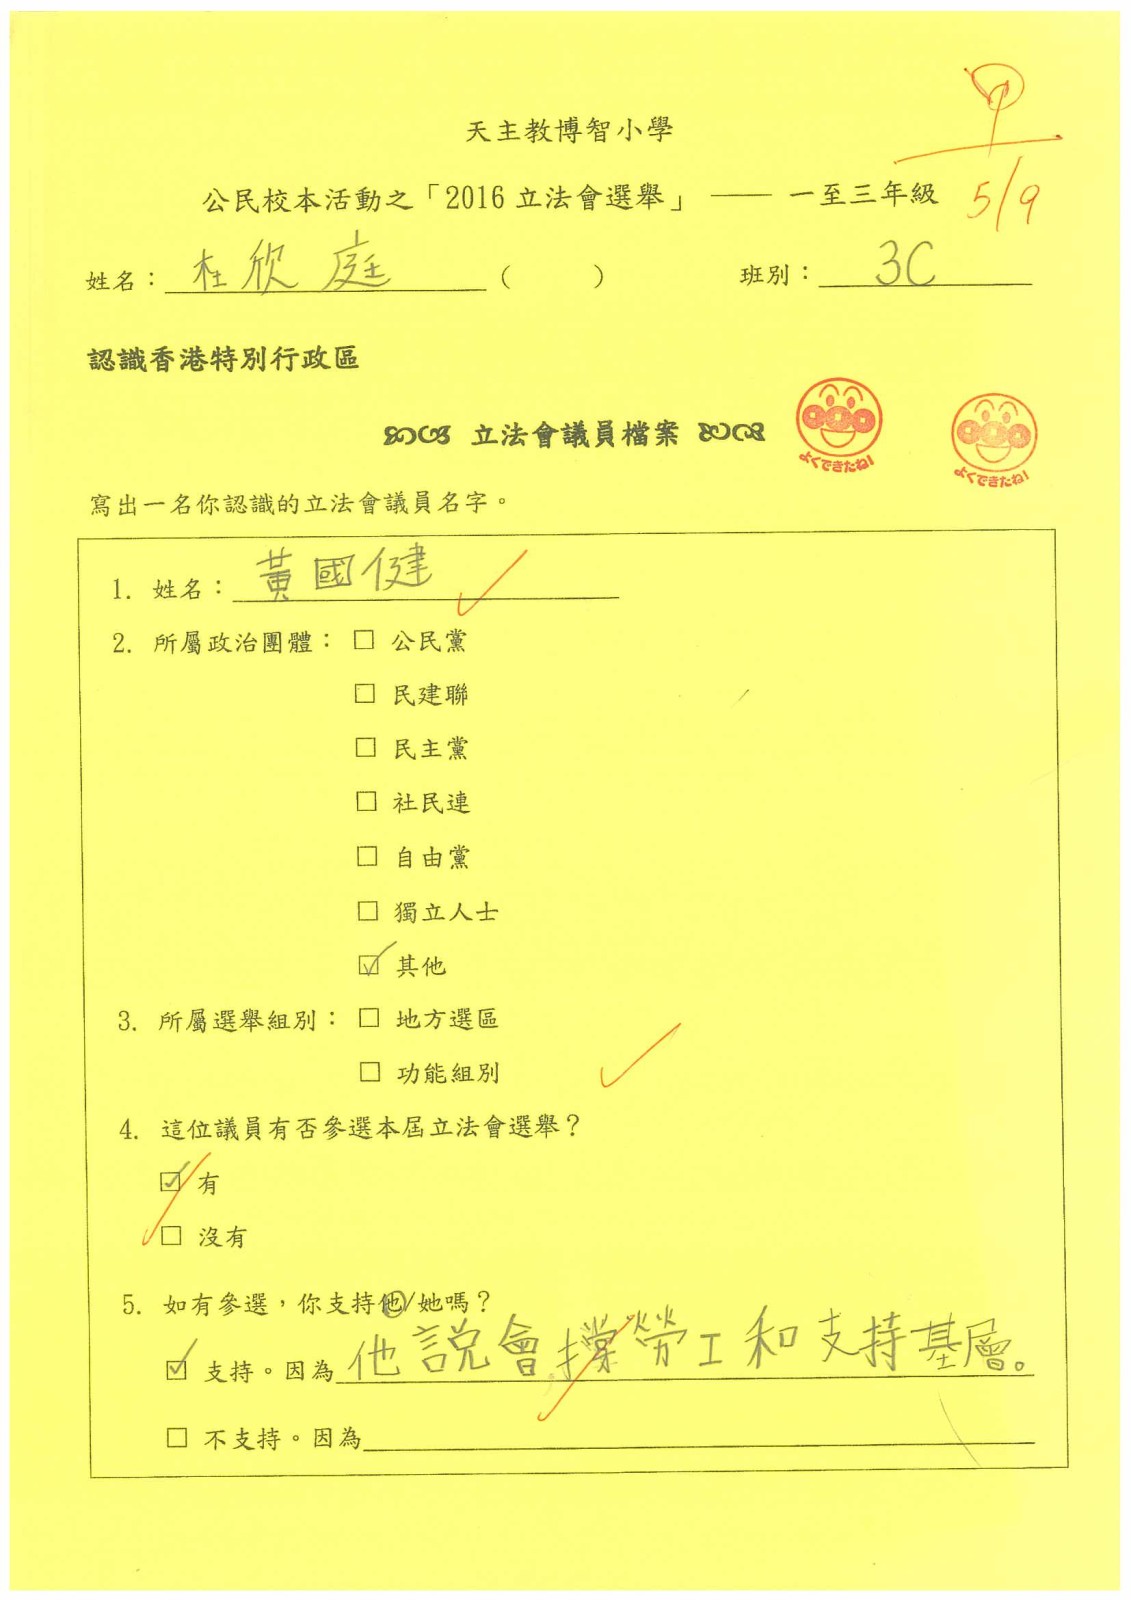 天主教博智小學
公民校本活動之「2016 立法會選舉」 —— 一至三年級
甲
5/9
姓名：杜欣庭 (　　) 班別：3C
認識香港特別行政區
立法會議員檔案
よくできたね!
よくできたね!
寫出一名你認識的立法會議員名字。
1. 姓名：黃國健
2. 所屬政治團體：□ 公民黨
□ 民建聯
□ 民主黨
□ 社民連
□ 自由黨
□ 獨立人士
☑ 其他
3. 所屬選舉組別：□ 地方選區
□ 功能組別
4. 這位議員有否參選本屆立法會選舉？
☑ 有
□ 沒有
5. 如有參選，你支持他/她嗎？
☑ 支持。因為他說會撐勞工和支持基層。
□ 不支持。因為